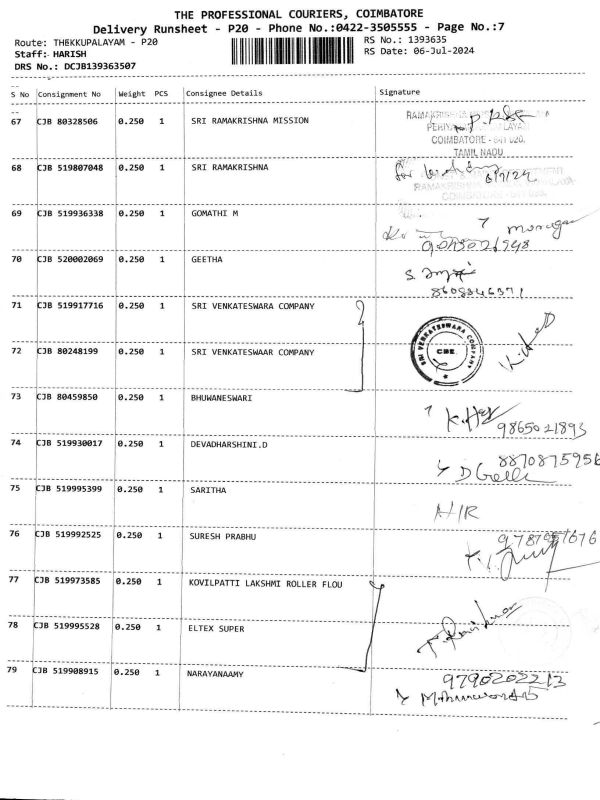 THE PROFESSIONAL COURIERS, COIMBATORE
Delivery Runsheet - P20 - Phone No.:0422-3505555 - Page No.:7
Route: THEKKUPALAYAM - P20 RS No.: 1393635
Staff: HARISH RS Date: 06-Jul-2024
DRS No.: DCJB139363507
S No Consignment No Weight PCS Consignee Details Signature
67 CJB 80328506 0.250 1 SRI RAMAKRISHNA MISSION
COIMBATORE - 641 020,
TAMIL NADU
68 CJB 519807048 0.250 1 SRI RAMAKRISHNA
for 6/7/24
69 CJB 519936338 0.250 1 GOMATHI M
70 CJB 520002069 0.250 1 GEETHA
8608846371
71 CJB 519917716 0.250 1 SRI VENKATESWARA COMPANY
SRI VENKATESWARA COMPANY
CBE.
72 CJB 80248199 0.250 1 SRI VENKATESWAAR COMPANY
73 CJB 80459850 0.250 1 BHUWANESWARI
9865021893
74 CJB 519930017 0.250 1 DEVADHARSHINI.D
8870875956
75 CJB 519995399 0.250 1 SARITHA
N/R
76 CJB 519992525 0.250 1 SURESH PRABHU
77 CJB 519973585 0.250 1 KOVILPATTI LAKSHMI ROLLER FLOU
78 CJB 519995528 0.250 1 ELTEX SUPER
79 CJB 519908915 0.250 1 NARAYANAAMY
9790202213